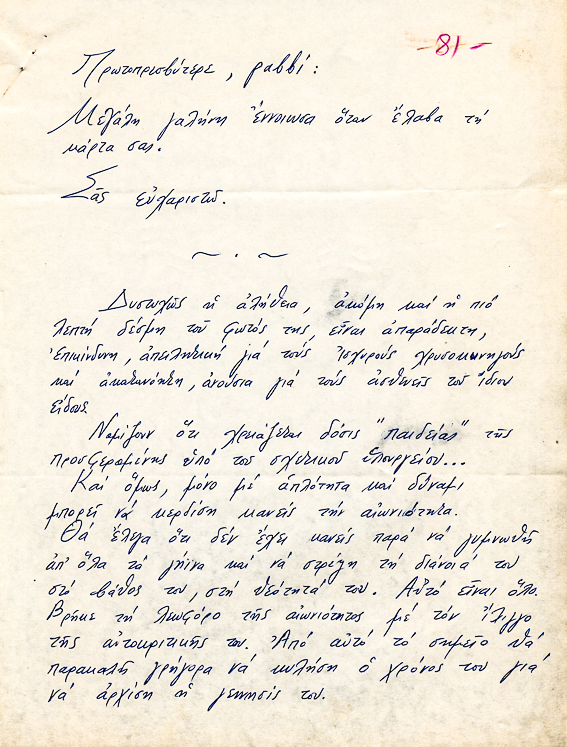 -81-
Πρωτοπρεσβύτερε, ραββί:
Μεγάλη γαλήνη ἔννοιωσα ὅταν ἔλαβα τή
κάρτα σας.
Σᾶς εὐχαριστῶ.
~ . ~
Δυστυχῶς ἡ ἀλήθεια, ἀκόμη καί ἡ πιό
λεπτή δέσμη τοῦ φωτός της, εἶναι ἀπαράδεκτη,
ἐπικίνδυνη, ἀπειλητική γιά τούς ἰσχυρούς χρυσοκυνηγούς
καί ἀκατανόητη, ἀνούσια γιά τούς ἀσθενεῖς τοῦ ἴδιου
εἴδους.
Νομίζουν ὅτι χρειάζεται δόσις "παιδείας" τῆς
προσφερομένης ὑπό τοῦ σχετικοῦ ὑπουργείου...
Καί ὅμως, μόνο μέ ἁπλότητα καί δύναμι
μπορεῖ νά κερδίση κανείς τήν αἰωνιότητα.
Θά ἔλεγα ὅτι δέν ἔχει κανείς παρά νά γυμνωθῆ
ἀπ' ὅλα τά γήϊνα καί νά στρέψη τή διάνοιά του
στό βάθος του, στή θεότητά του. Αὐτό εἶναι ὅλο.
Βρῆκε τή λεωφόρο τῆς αἰωνιότητος μέ τόν ἴλιγγο
τῆς αὐτοκριτικῆς του. Ἀπό αὐτό τό σημεῖο θά
παρακαλῆ γρήγορα νά κυλήση ὁ χρόνος του γιά
νά ἀρχίση ἡ γέννησίς του.